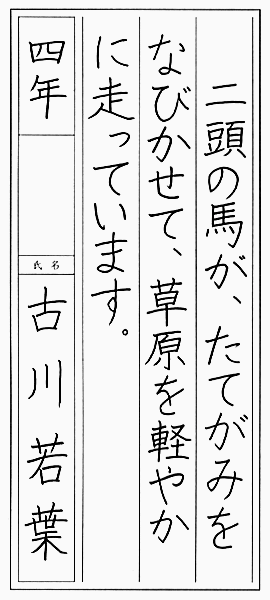 二頭の馬が、たてがみを
なびかせて、草原を軽やか
に走っています。
四年
氏名
古川若葉